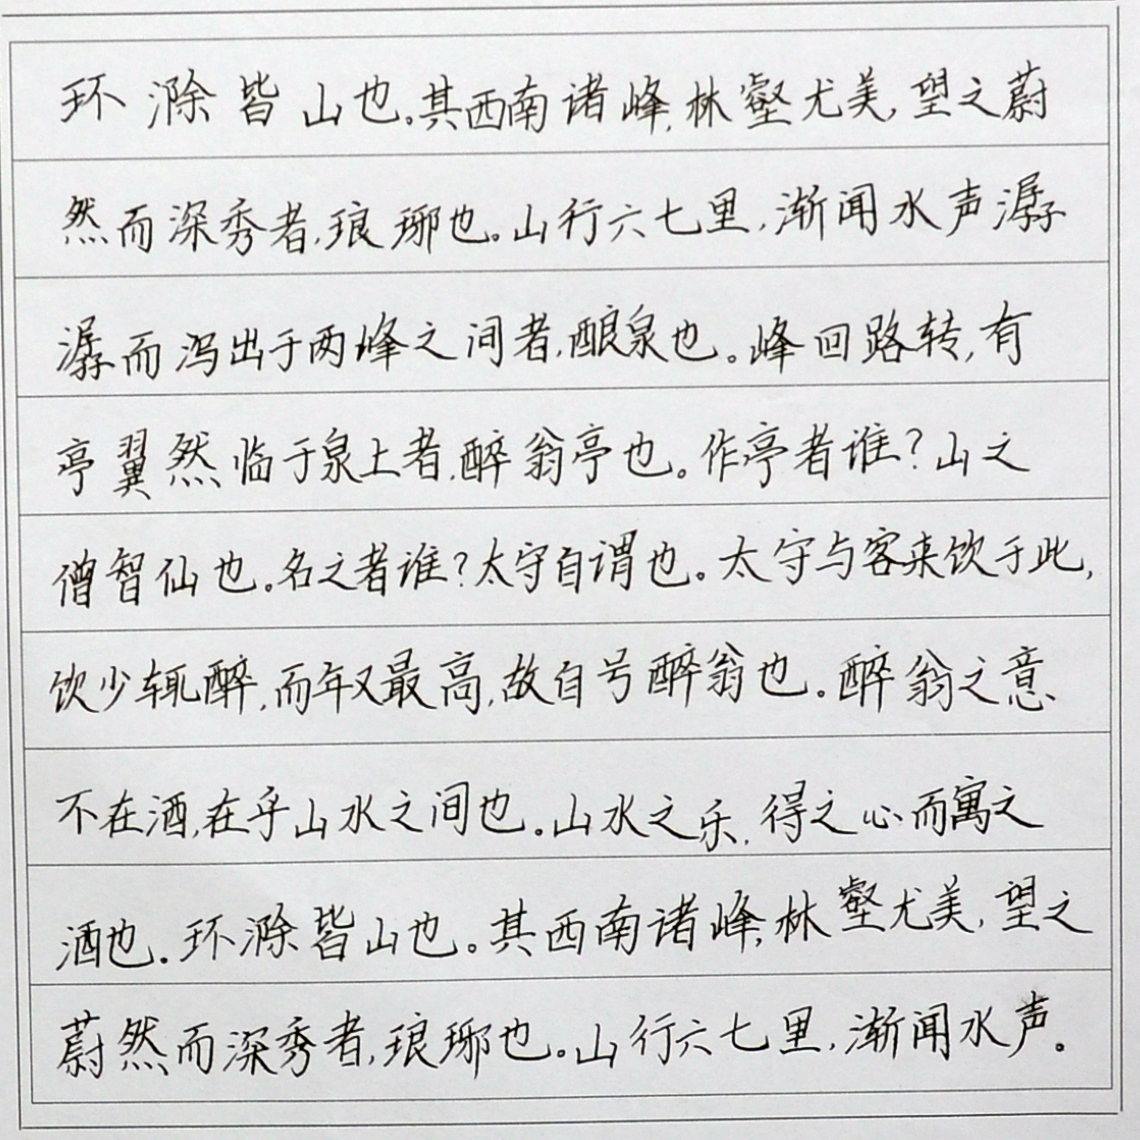 环滁皆山也。其西南诸峰,林壑尤美,望之蔚
然而深秀者,琅琊也。山行六七里,渐闻水声潺
潺而泻出于两峰之间者,酿泉也。峰回路转,有
亭翼然临于泉上者,醉翁亭也。作亭者谁?山之
僧智仙也。名之者谁?太守自谓也。太守与客来饮于此,
饮少辄醉,而年又最高,故自号醉翁也。醉翁之意
不在酒,在乎山水之间也。山水之乐,得之心而寓之
酒也.环滁皆山也。其西南诸峰,林壑尤美,望之
蔚然而深秀者,琅琊也。山行六七里,渐闻水声。